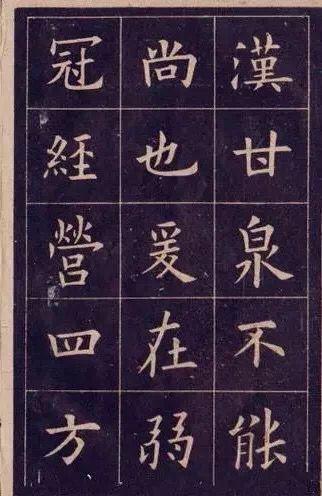 漢甘泉不能
尚也爰在弱
冠經營四方